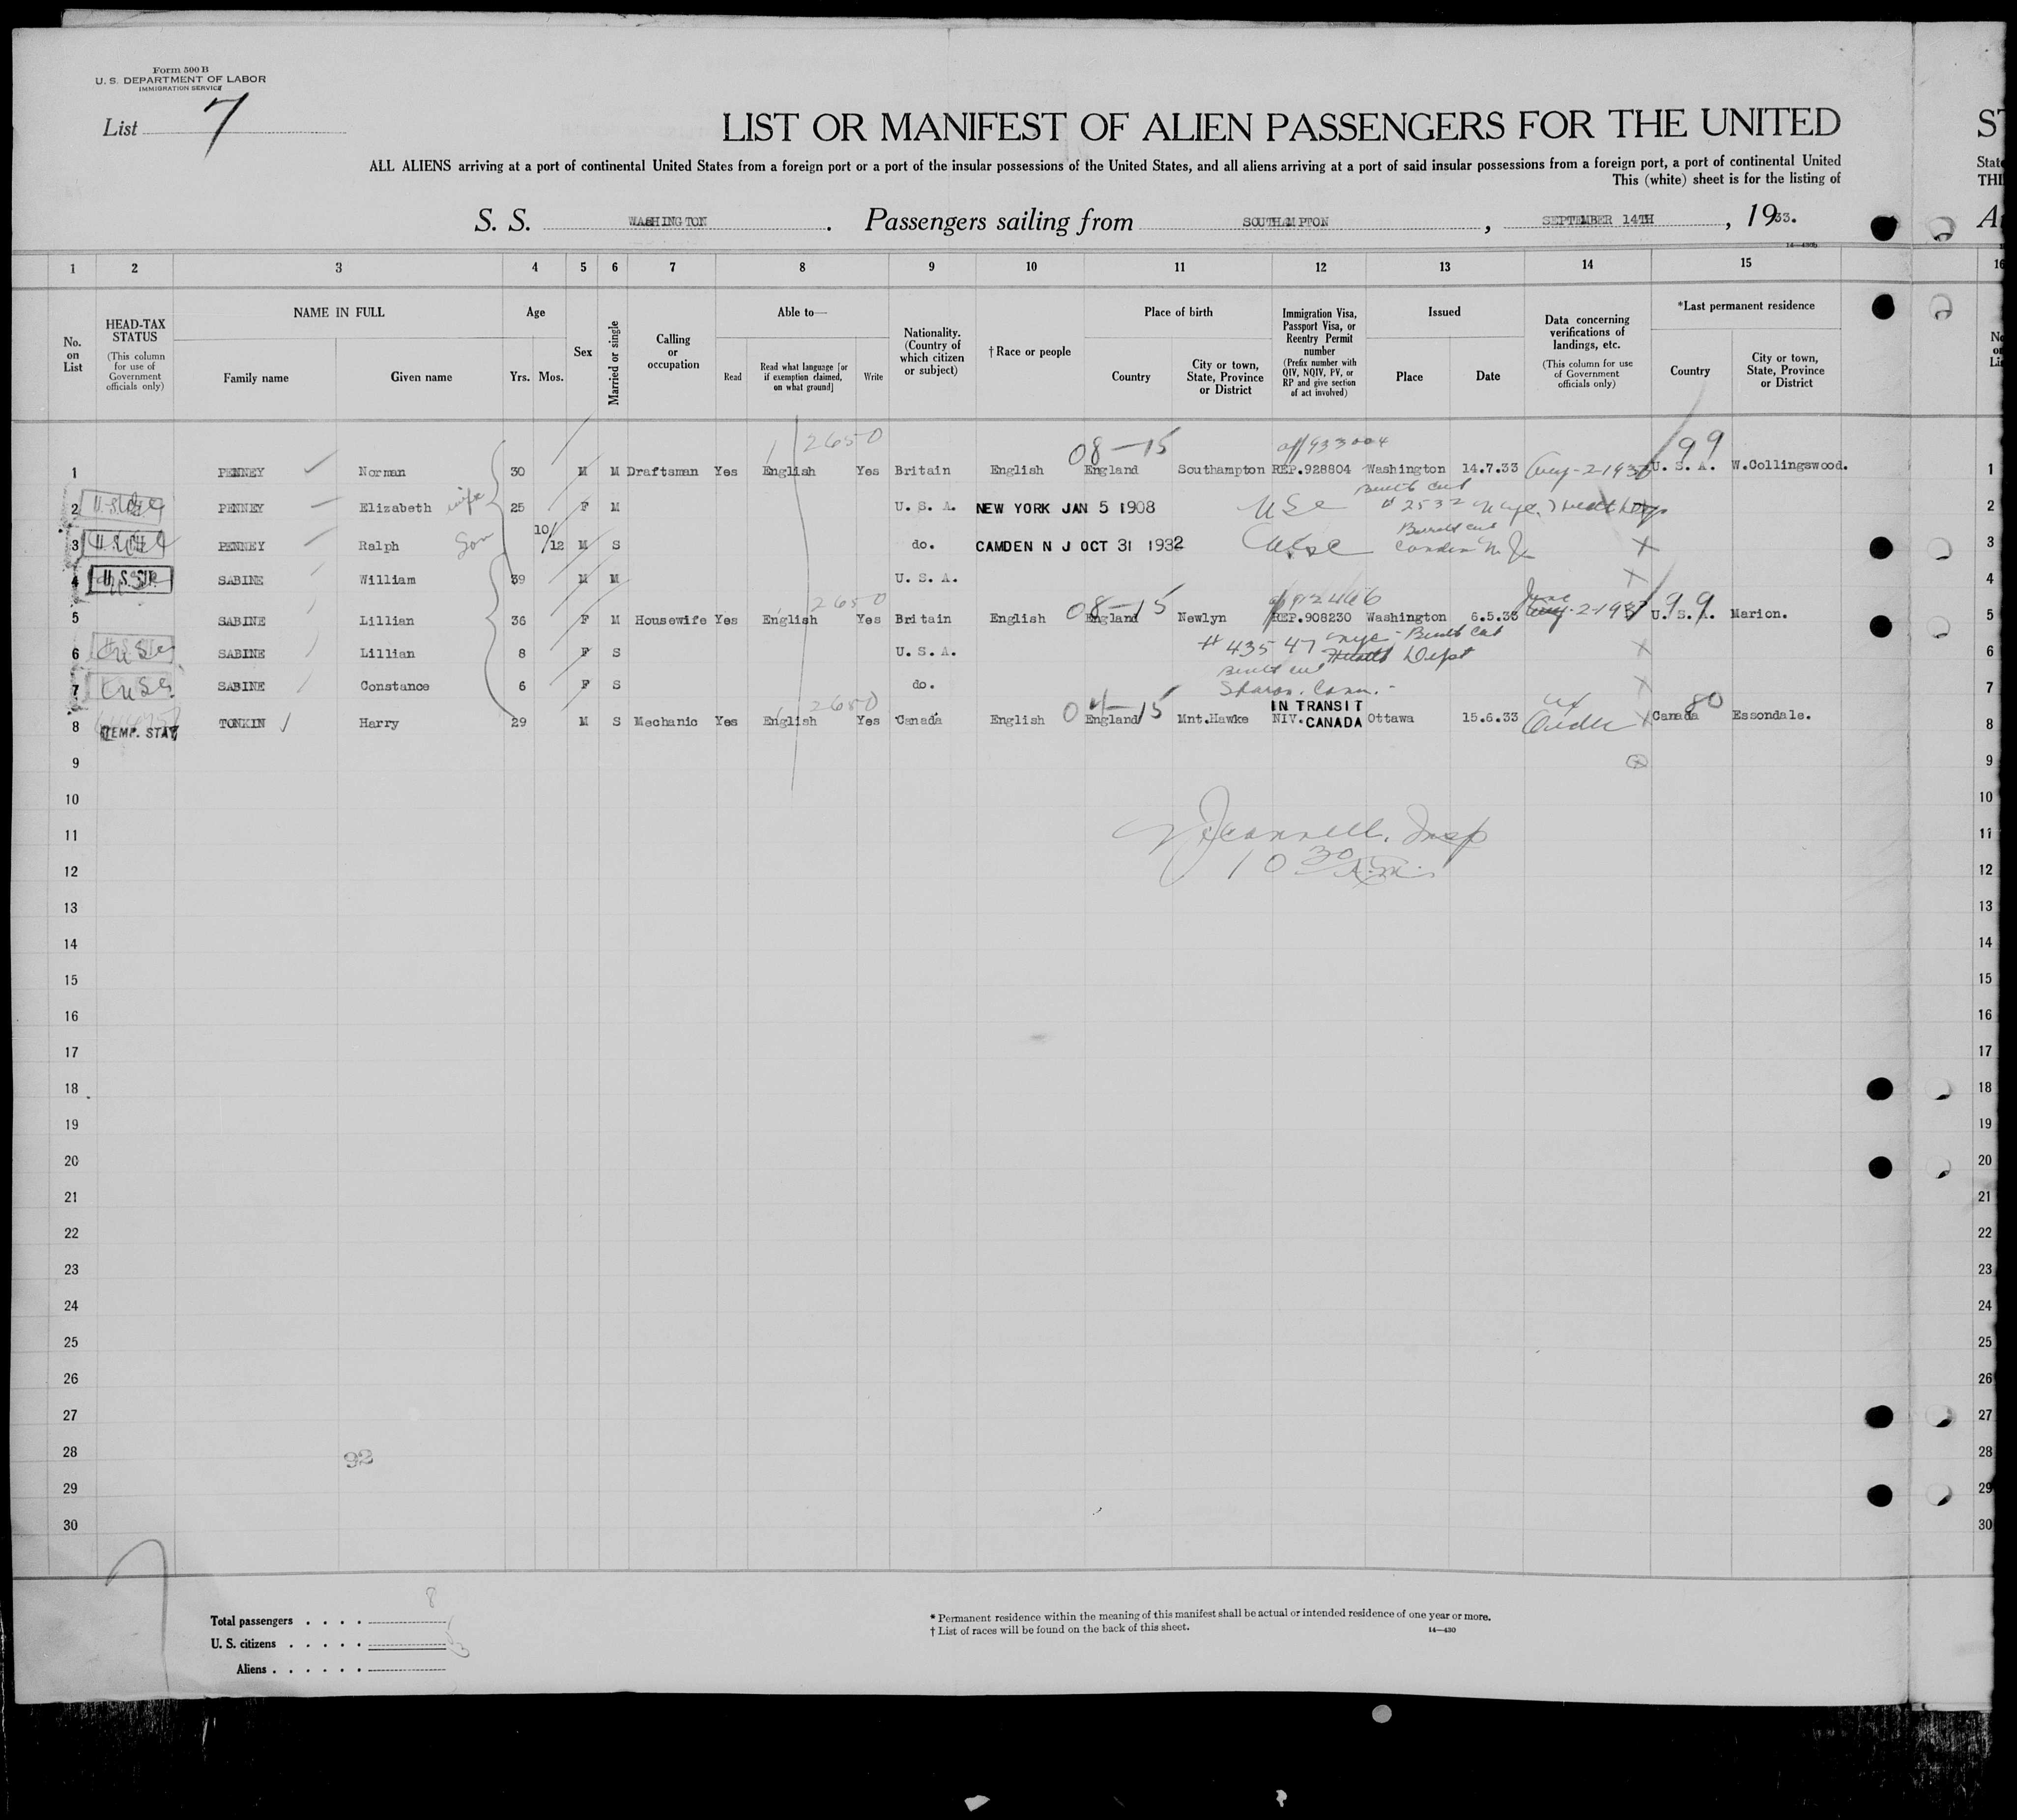 Form 500 B
U. S. DEPARTMENT OF LABOR
IMMIGRATION SERVICE
List 7
LIST OR MANIFEST OF ALIEN PASSENGERS FOR THE UNITED
ALL ALIENS arriving at a port of continental United States from a foreign port or a port of the insular possessions of the United States, and all aliens arriving at a port of said insular possessions from a foreign port, a port of continental United
This (white) sheet is for the listing of
S. S. WASHINGTON. Passengers sailing from SOUTHAMPTON, SEPTEMBER 14TH, 1933.
14—430b
1 2 3 4 5 6 7 8 9 10 11 12 13 14 15 16
No. on List
HEAD-TAX STATUS
(This column for use of Government officials only)
NAME IN FULL
Family name
Given name
Age
Yrs. Mos.
Sex
Married or single
Calling or occupation
Able to—
Read
Read what language [or if exemption claimed, on what ground]
Write
Nationality. (Country of which citizen or subject)
† Race or people
Place of birth
Country
City or town, State, Province or District
Immigration Visa, Passport Visa, or Reentry Permit number
(Prefix number with QIV, NQIV, PV, or RP and give section of act involved)
Issued
Place
Date
Data concerning verifications of landings, etc.
(This column for use of Government officials only)
*Last permanent residence
Country
City or town, State, Province or District
2650 08—15 99
1 PENNEY Norman 30 M M Draftsman Yes English Yes Britain English England Southampton REP.928804 Washington 14.7.33 U. S. A. W.Collingswood. 1
2 PENNEY Elizabeth wife 25 F M U. S. A. NEW YORK JAN 5 1908 USC 2
3 PENNEY Ralph Son 10/12 M S do. CAMDEN N J OCT 31 1932 Camden 3
4 SABINE William 39 M M U. S. A. 4
2650 08—15 99
5 SABINE Lillian 36 F M Housewife Yes English Yes Britain English England Newlyn REP.908230 Washington 6.5.33 June U. S. A. Marion. 5
6 SABINE Lillian 8 F S U. S. A. # 43547 Dept 6
7 SABINE Constance 6 F S do. Sharon, Conn. 7
2650 04—15 IN TRANSIT 80
8 TEMP. STAY TONKIN Harry 29 M S Mechanic Yes English Yes Canada English England Mnt.Hawke NIV. CANADA Ottawa 15.6.33 Canada Essondale. 8
9 9
10 10
11 Insp 11
12 10 30 A.M. 12
13 13
14 14
15 15
16 16
17 17
18 18
19 19
20 20
21 21
22 22
23 23
24 24
25 25
26 26
27 27
28 92 28
29 29
30 30
Total passengers . . . . 8
U. S. citizens . . . . .
Aliens . . . . . .
* Permanent residence within the meaning of this manifest shall be actual or intended residence of one year or more.
† List of races will be found on the back of this sheet.
14—430